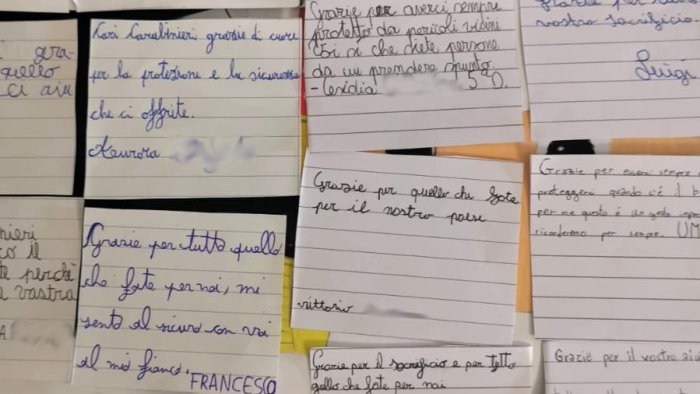 gra-
quello
ci aiu
Cari Carabinieri grazie di cuore
per la protezione e la sicurezza
che ci offrite.
Aurora
Grazie per averci sempre
protetto da pericoli vicini
Voi si che siete persone
da cui prendere spunto.
- Cesidia 5 D.
vostro sacrificio
Luigi
nieri
il
perchè
vostra
A
Grazie per tutto quello
che fate per noi, mi
sento al sicuro con voi
al mio fianco.
FRANCESCO
Grazie per quello che fate
per il nostro paese
vittorio
Grazie per esserci sempre a
proteggerci quando c'è il b
per me questo è un gesto
ricorderemo per sempre. UM
Grazie per il sacrificio e per tutto
quello che fate per noi
Grazie per il vostro aiu